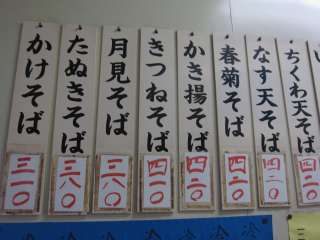 かけそば
三一〇
たぬきそば
三八〇
月見そば
三八〇
きつねそば
四一〇
かき揚そば
四二〇
春菊そば
四二〇
なす天そば
四二〇
ちくわ天そば